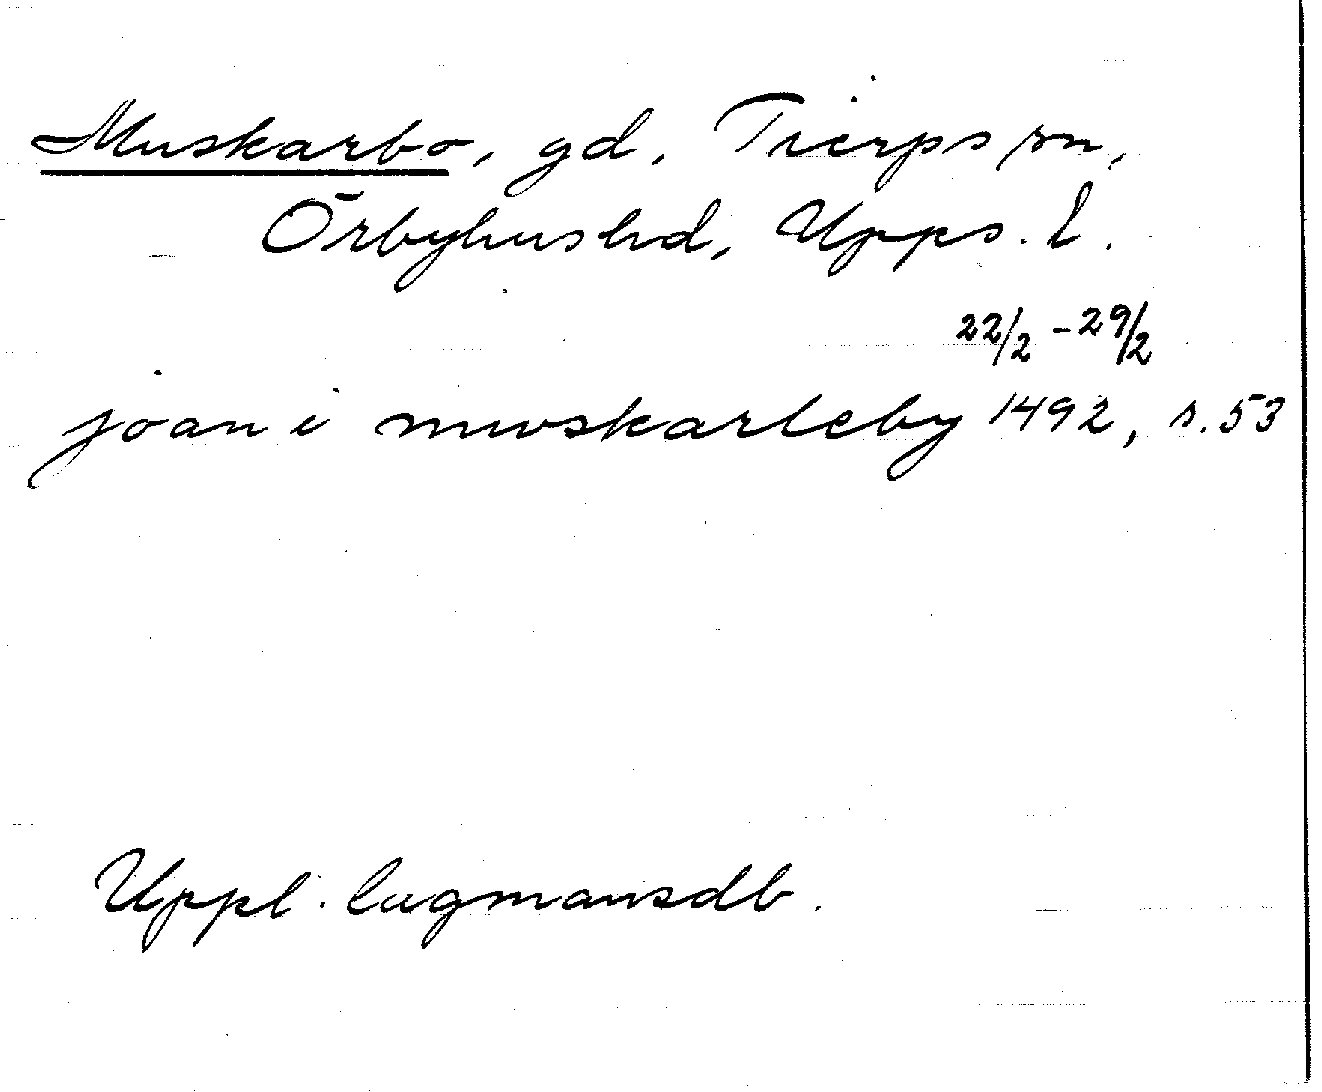 Muskarbo, gd, Tierps sn,
Örbyhus hd, Upps. l.
22/2 - 29/2
joan i mwskarleby 1492, s. 53
Uppl. lagmansdb.